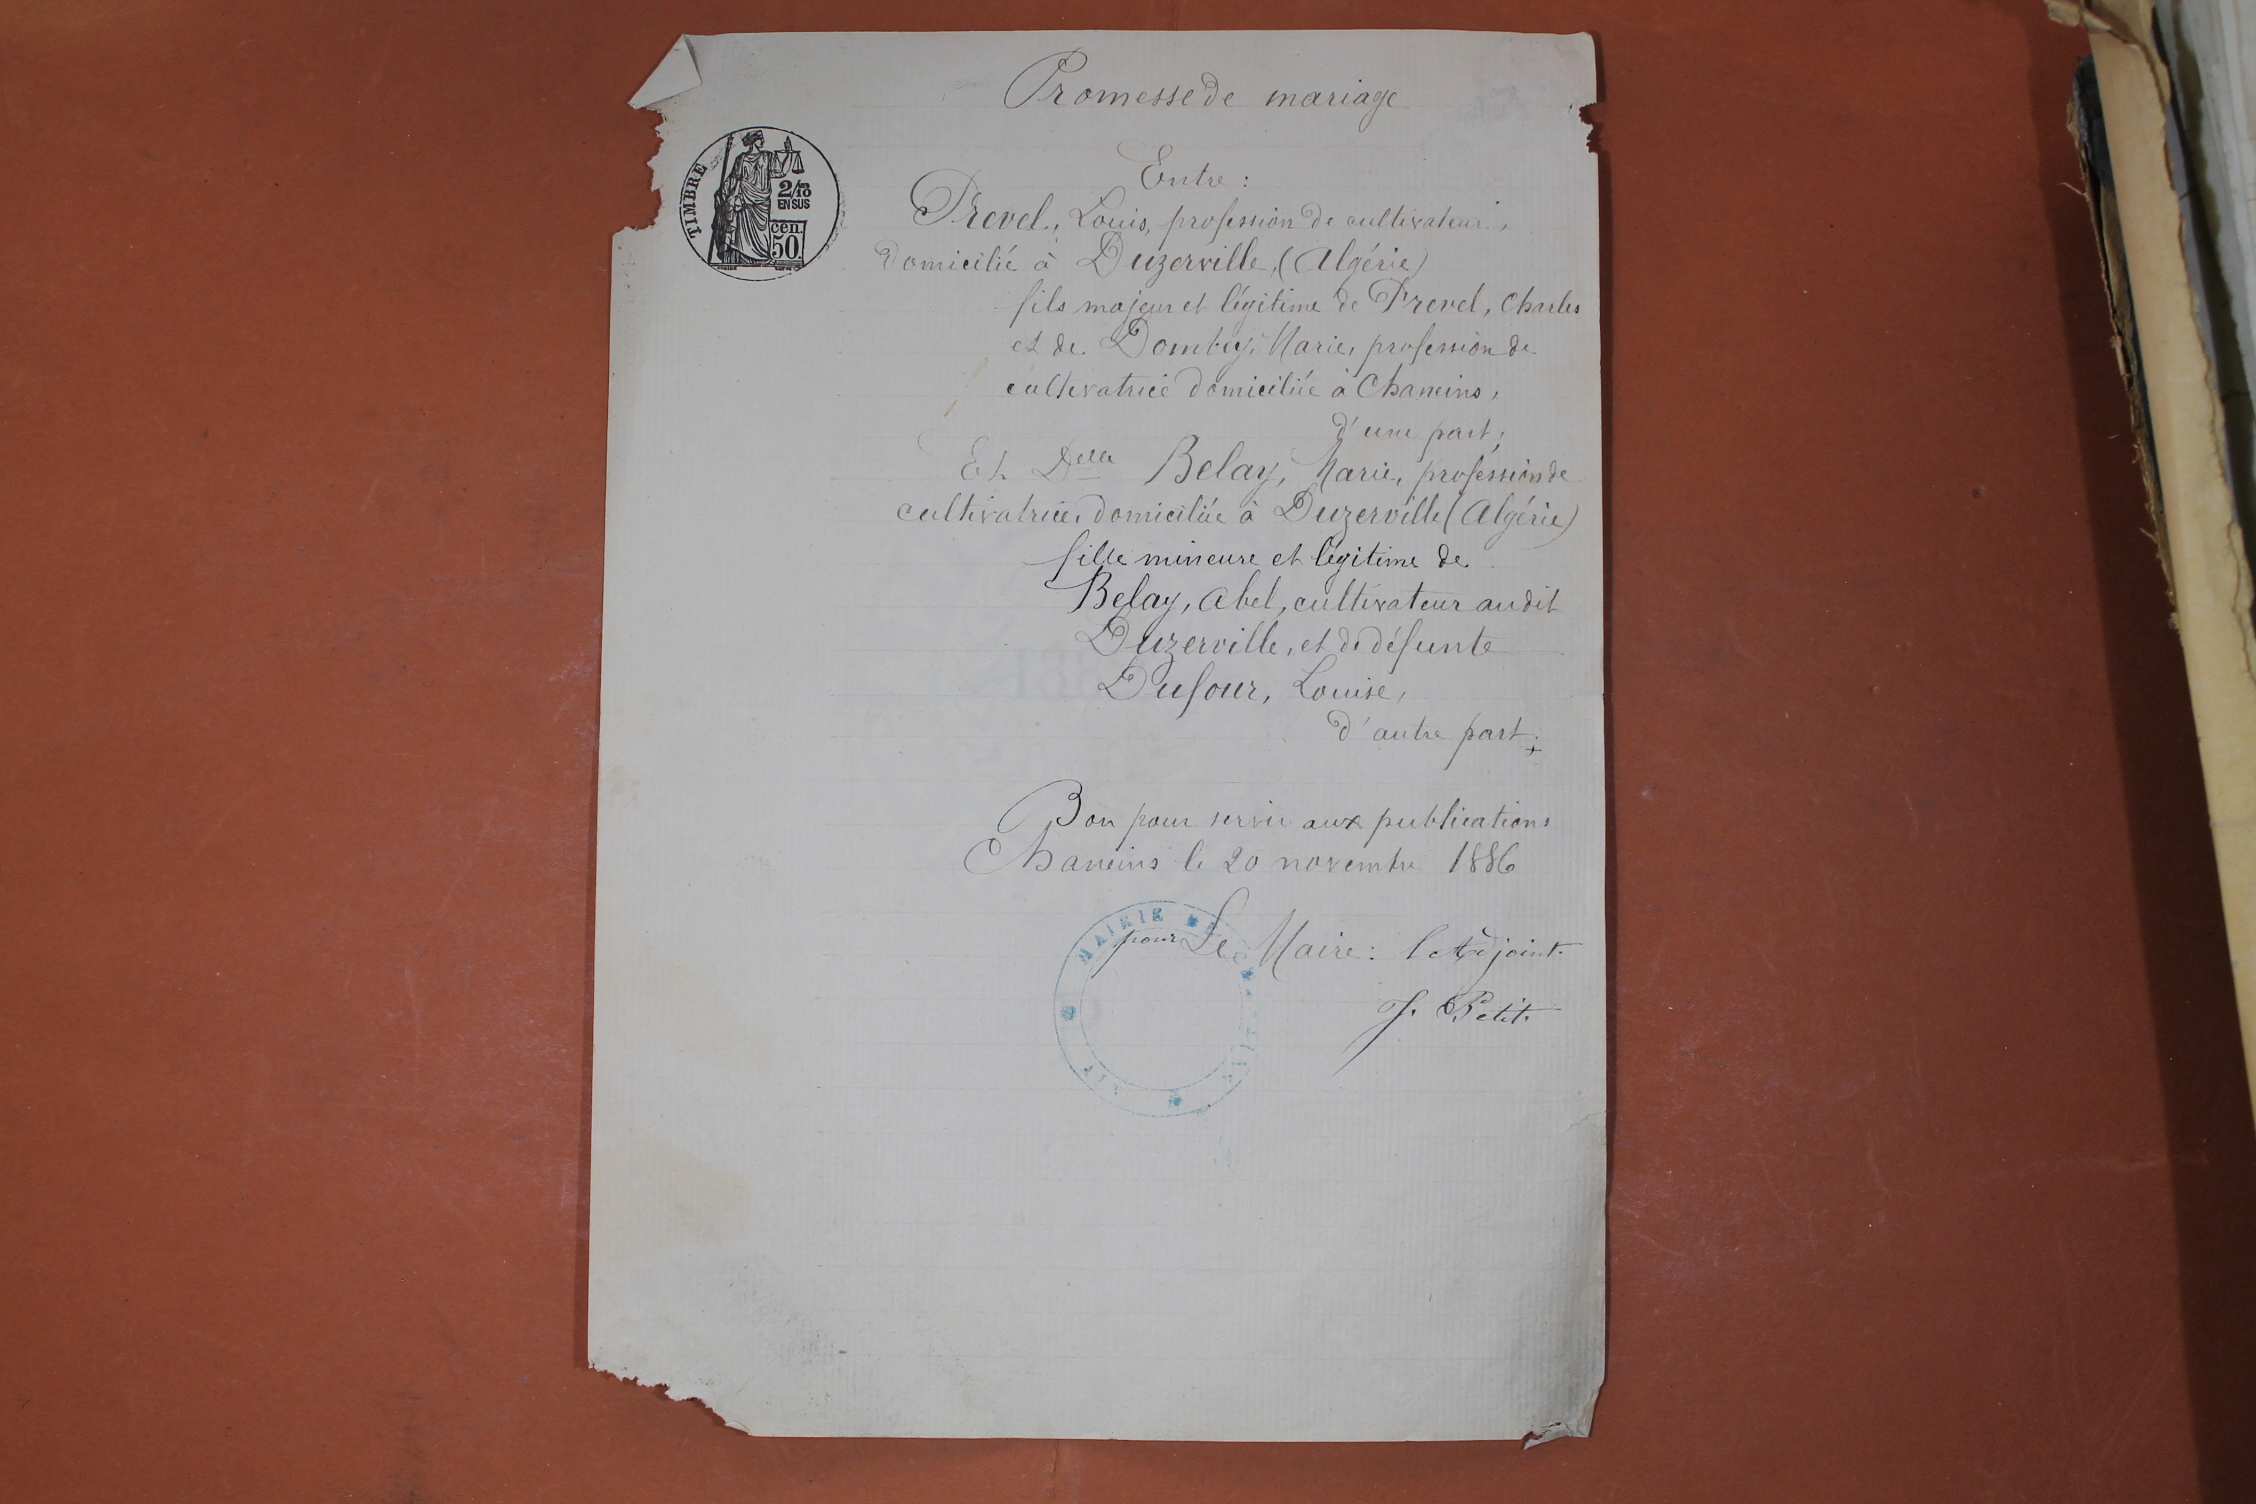 Promesse de mariage
TIMBRE
2/10
EN SUS
cen.
50.
Entre :
Prevel, Louis, profession de cultivateur,
domicilié à Duzerville, (Algérie)
fils majeur et légitime de Prevel, Charles
et de Dombey, Marie, profession de
cultivatrice domiciliée à Chaneins,
d'une part;
Et Delle Belay, Marie, profession de
cultivatrice, domiciliée à Duzerville (Algérie)
fille mineure et légitime de
Belay, Abel, cultivateur audit
Duzerville, et de défunte
Dufour, Louise,
d'autre part;
Bon pour servir aux publications
Chaneins le 20 novembre 1886
MAIRIE DE
pour Le Maire : l'Adjoint.
J. Petit.